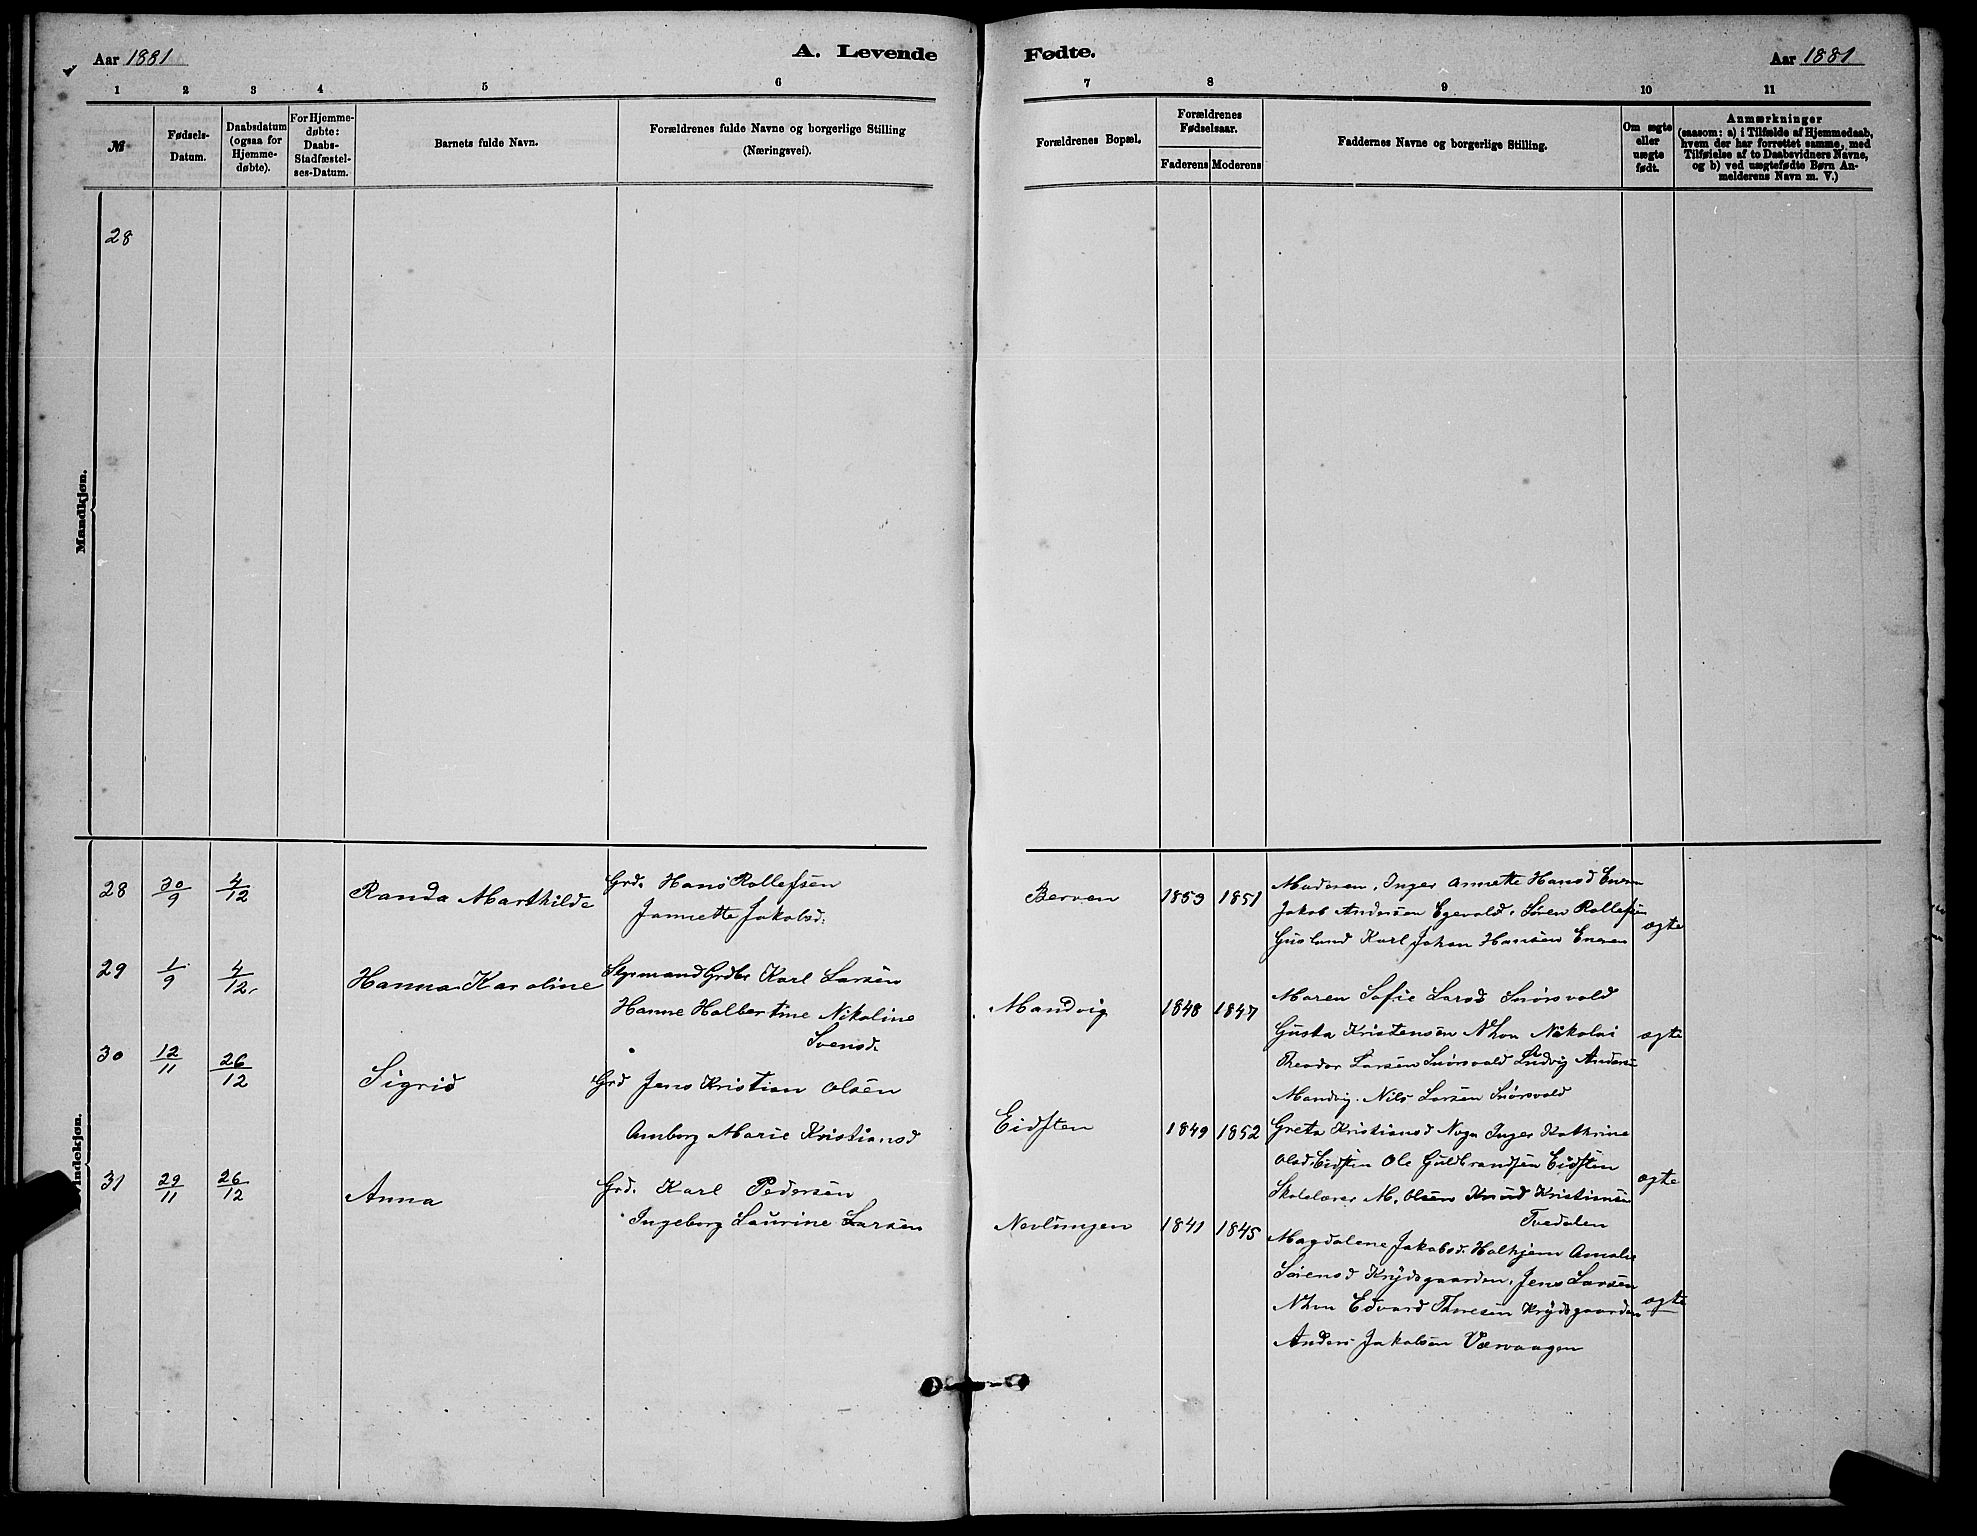 Aar 1881
A. Levende
Fødte.
Aar 1881
1 2 3 4 5 6 7 8 9 10 11
№
Fødsels-
Datum.
Daabsdatum
(ogsaa for
Hjemme-
døbte).
For Hjemme-
døbte:
Daabs-
Stadfæstel-
ses-Datum.
Barnets fulde Navn.
Forældrenes fulde Navne og borgerlige Stilling
(Næringsvei).
Forældrenes Bopæl.
Forældrenes
Fødselsaar.
Faderens Moderens
Faddernes Navne og borgerlige Stilling.
Om ægte
eller
uægte
født.
Anmærkninger
(saasom: a) i Tilfælde af Hjemmedaab,
hvem der har forrettet samme, med
Tilføielse af to Daabsvidners Navne,
og b) ved uægtefødte Børn An-
melderens Navn m. V.)
Mandkjøn.
28
Kvindekjøn.
28 30/9 4/12 Randa Marthilde
Grd. Hans Rollefsen
Jannette Jakobsd.
Berven 1853 1851
Moderen, Inger Annette Hansd
Jakob Andersen Egevold. Søren Rollefsen
Gusland Karl Johan Hansen
ægte
29 1/9 4/12. Hanna Karoline
Styrmand Grdbr Karl Larsen
Hanne Halbertine Nikoline
Svensd.
Mandvig 1848 1847
Maren Sofie Larsd Snørsvold
Gusta Kristensen Nhvn Nikolai
Theodor Larsen Snørsvold Ludvig Anders
Mandvig. Nils Larsen Snørsvold
ægte
30 12/11 26/12 Sigrid
Grd Jens Kristian Olsen
Amborg Marie Kristiansd
Eidsten 1849 1852
Greta Kristiansd Inger Kathrine
Olsd. Eidsten Ole Guldbrandsen Eidsten
Skolelærer M. Olsen Knud Kristiansen
Tvedalen
ægte
31 29/11 26/12 Anna
Grd. Karl Pedersen
Ingeborg Laurine Larsen
Nevlungen 1841 1845
Magdalene Jakobsd. Halhjem Amalie
Sørensd Krydsgaarden, Jens Larsen
Nhvn Edvard Thoresen Krydsgaarden
Anders Jakobsen Værvaagen
ægte